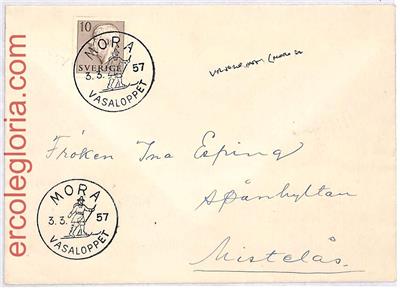 ercolegloria.com
10
SVERIGE
MORA
3.3. 57
VASALOPPET
Fröken Ina Esping
Spånhyltan
Mistelås.
MORA
3.3. 57
VASALOPPET